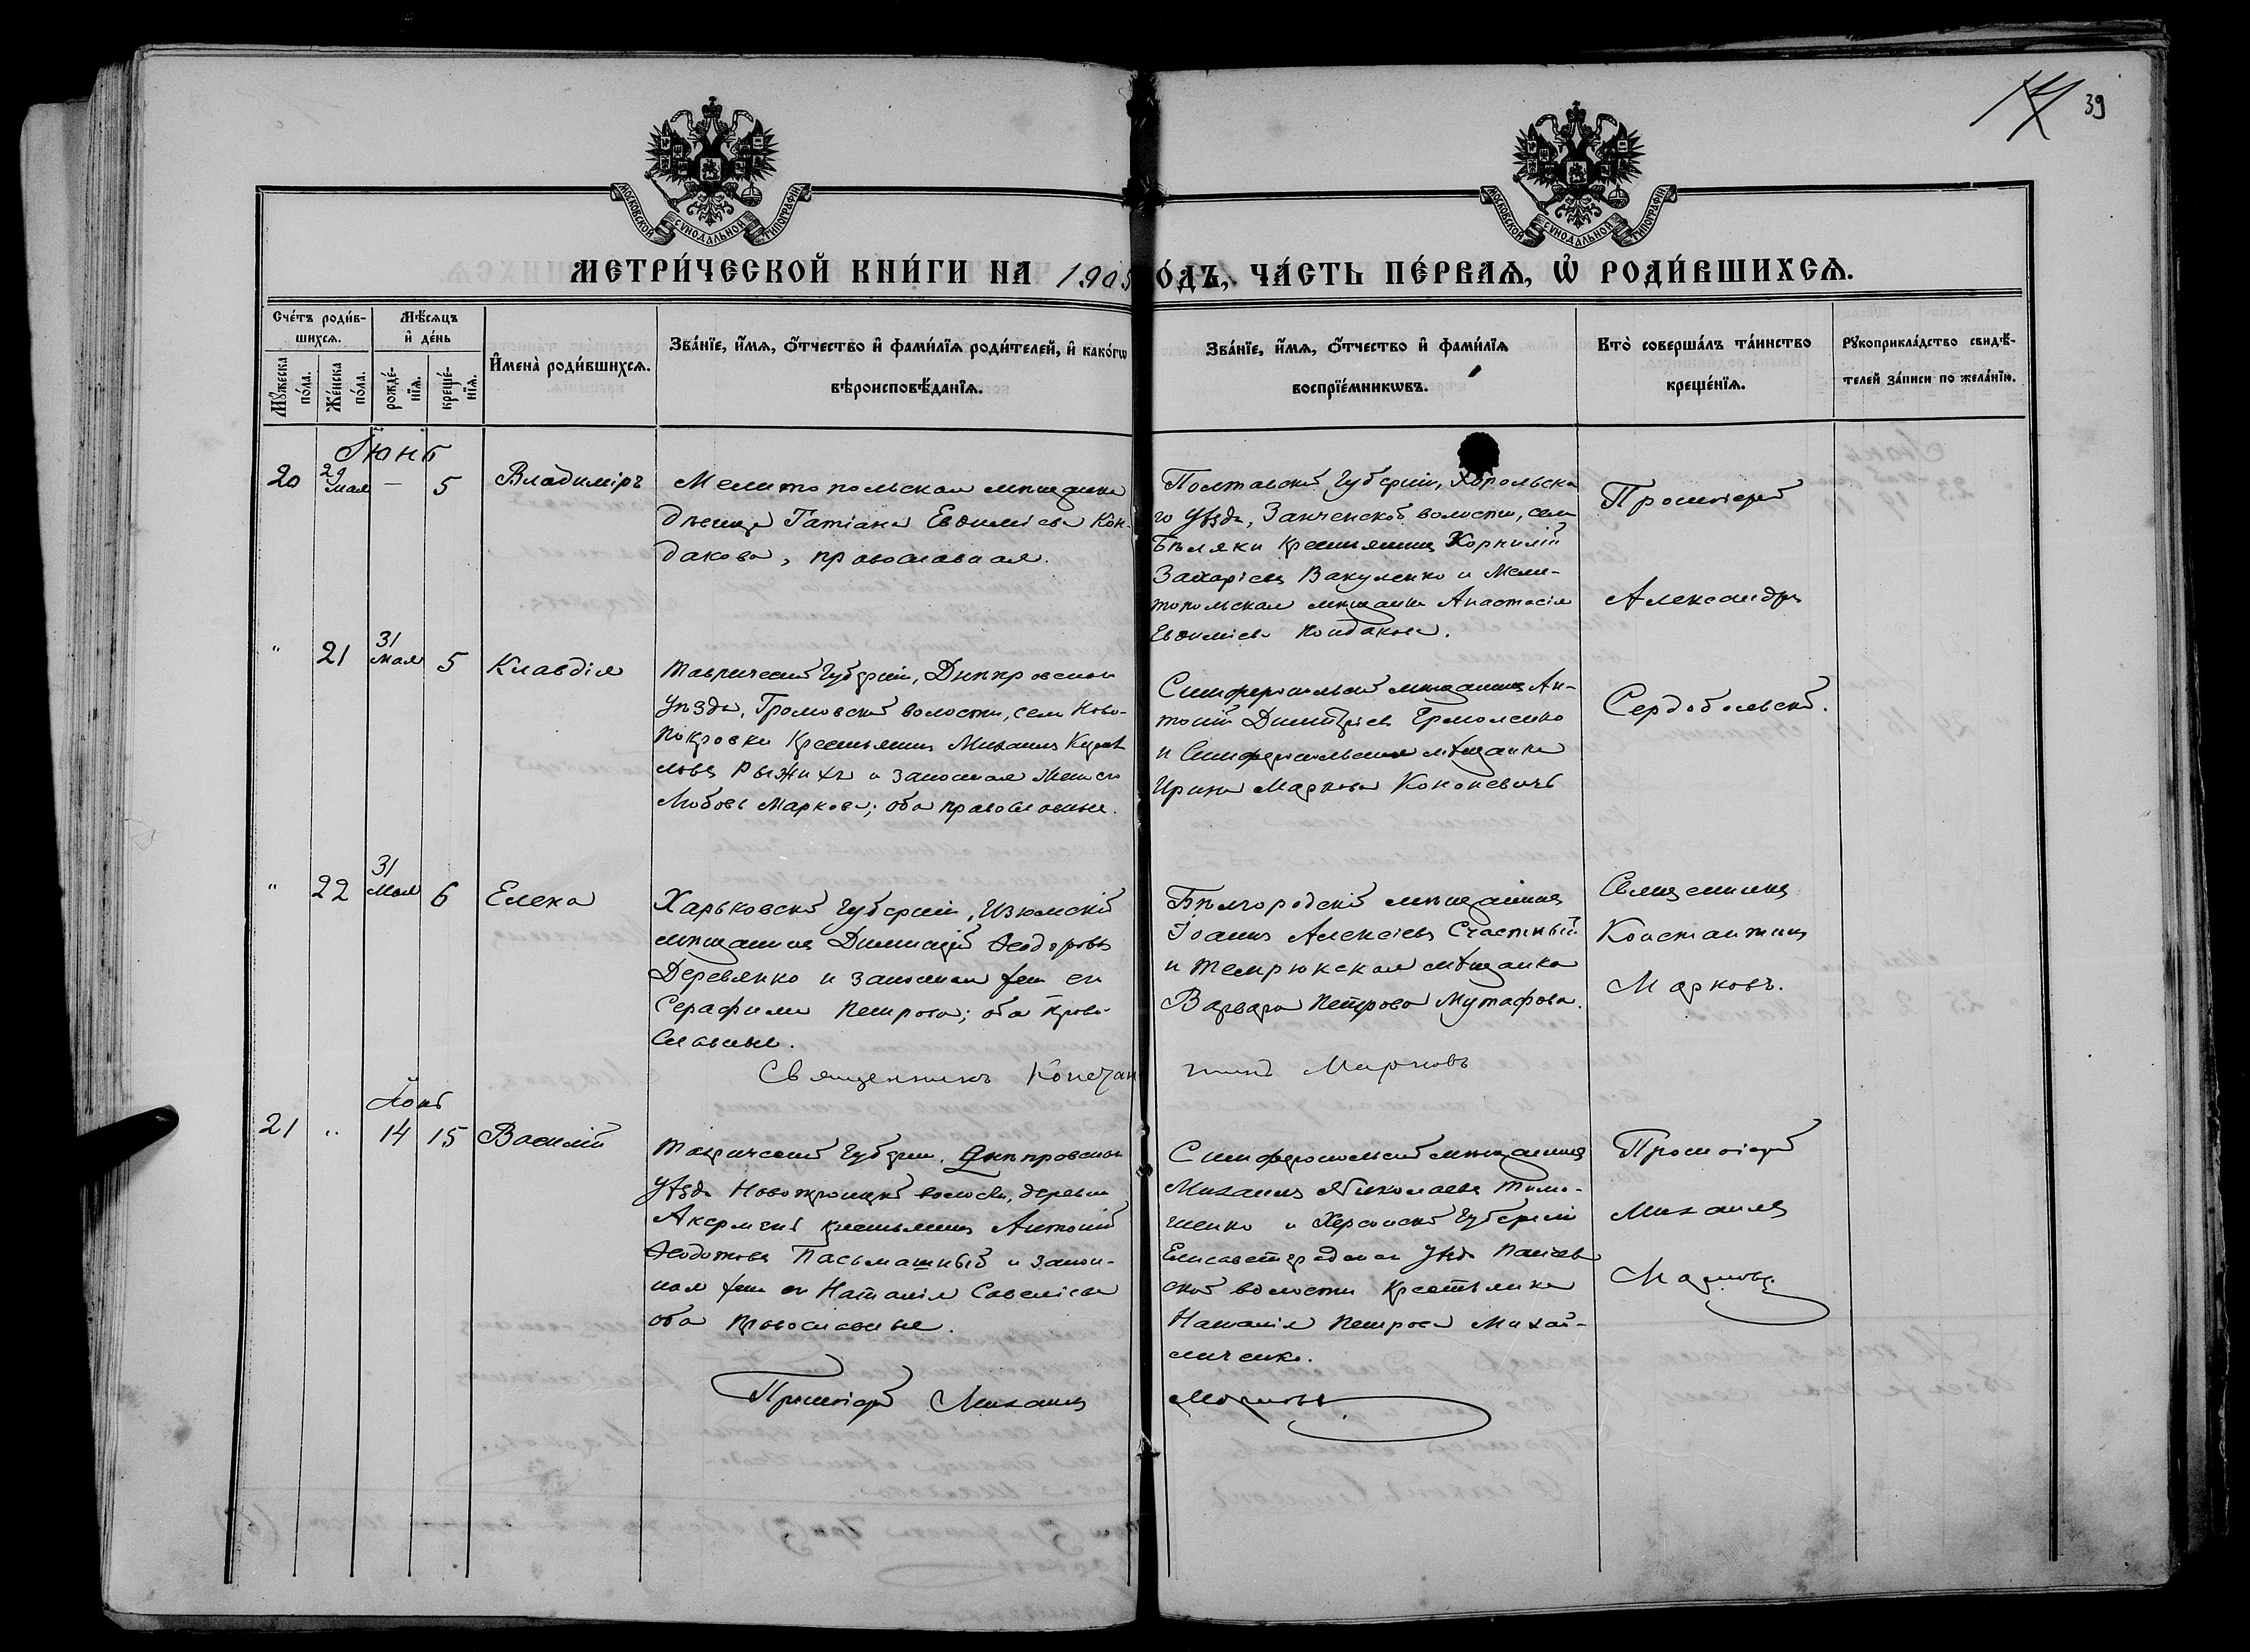 39
МОСКОВСКОЙ СУНОДАЛЬНОЙ ТИПОГРАФІИ
МОСКОВСКОЙ СУНОДАЛЬНОЙ ТИПОГРАФІИ
МЕТРИ́ЧЕСКОЙ КНИ́ГИ НА 1905
О́ДЪ, ЧА́СТЬ ПЕ́РВАѦ, Ѡ҆ РОДИ́ВШИХСѦ.
Сче́тъ роди́в-
шихсѧ.
Мꙋжеска по́ла.
Же́нска по́ла.
Мѣ́сѧцъ
и҆ де́нь
рожде́-
нїѧ.
креще́-
нїѧ.
И҆мена̀ роди́вшихсѧ.
Зва́нїе, и҆́мѧ, ѻ҆́тчество и҆ фами́лїѧ роди́телей, и҆ како́гѡ
вѣроисповѣ́данїѧ.
Зва́нїе, и҆́мѧ, ѻ҆́тчество и҆ фами́лїѧ
воспрїе́мникѡвъ.
Кто̀ соверша́лъ та́инство
креще́нїѧ.
Рꙋкоприкла́дство свидѣ́-
телей за́писи по жела́нїю.
Іюнь
20 29 мая — 5 Владиміръ
Мелитопольская мѣщанка
дѣвица Татіана Евѳиміева Кон-
дакова, православная.
Полтавской Губерніи, Хорольска
го уѣзда, волости, села
Бѣляки крестьянинъ Корнилій
Захаріевъ Вакуленко и Мели-
топольская мѣщанка Анастасія
Евѳиміева Кондакова.
Протоіерей
Александръ
Сердобольскій.
" 21 31 мая 5 Клавдія
Таврической Губерніи, Днѣпровскаго
уѣзда, Громовской волости, села Ново-
покровки крестьянинъ Михаилъ Кирил
ловъ Рыжихъ и законная жена его
Любовь Маркова; оба православные.
Симферопольскій мѣщанинъ Ан-
тоній Димитріевъ Ермоленко
и Симферопольская мѣщанка
Ирина Маркова Кононевичъ
" 22 31 Мая 6 Елена
Харьковской Губерніи, Изюмскій
мѣщанинъ Димитрій Ѳеодоровъ
Деревянко и законная жена его
Серафима Петрова; оба право-
славные.
Бѣлгородскій мѣщанинъ
Іоаннъ Алексіевъ Счастный
и Темрюкская мѣщанка
Варвара Петрова Мутафова.
Священникъ
Константинъ
Марковъ.
Священникъ Констан
тинъ Марковъ
Іюнь
21 " 14 15 Василій
Таврической Губерніи, Днѣпровскаго
уѣзда Новотроицкой волости, деревни
крестьянинъ Антоній
Ѳеодотовъ Пасьмашный и закон-
ная жена его Наталія Савеліева
оба православные.
Симферопольскій мѣщанинъ
Михаилъ Николаевъ Тимо-
шенко и Херсонской Губерніи
Елисаветградскаго уѣзда
ской волости крестьянка
Наталія Петрова Михай-
личенко.
Протоіерей
Михаилъ
Марковъ
Протоіерей Михаилъ
Марковъ